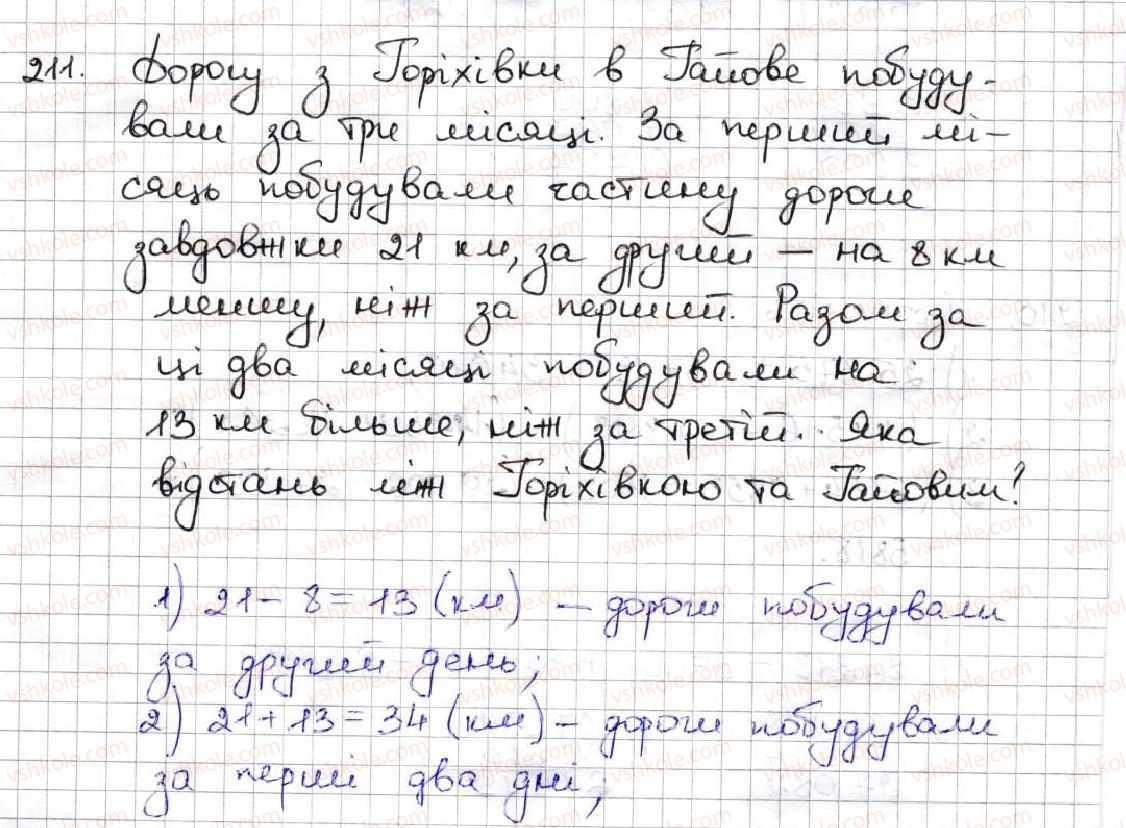 211. Дорогу з Горіхівки в Гайове побуду-
вали за три місяці. За перший мі-
сяць побудували частину дороги
завдовжки 21 км, за другий – на 8 км
меншу, ніж за перший. Разом за
ці два місяці побудували на
13 км більше, ніж за третій. Яка
відстань між Горіхівкою та Гайовим?
1) 21 - 8 = 13 (км) – дороги побудували
за другий день;
2) 21 + 13 = 34 (км) – дороги побудували
за перші два дні;